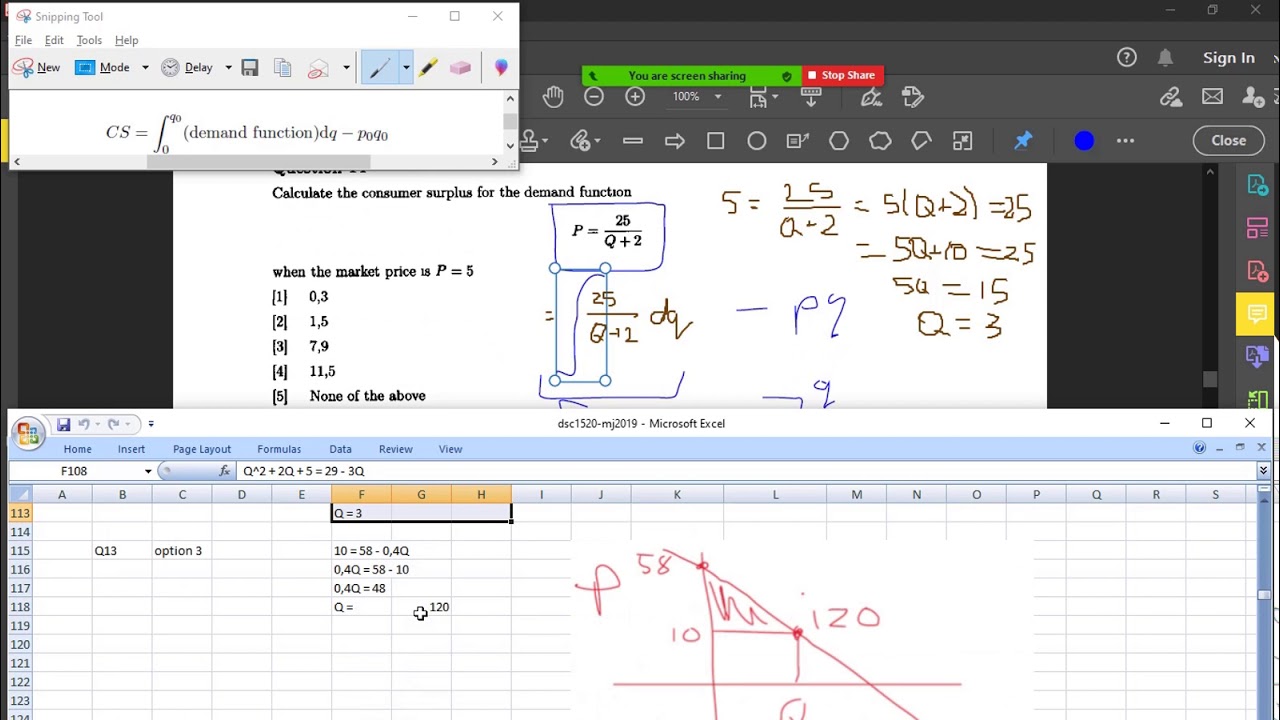 Snipping Tool
File Edit Tools Help
New Mode Delay
CS = ∫₀^q₀ (demand function)dq − p₀q₀
You are screen sharing Stop Share
Sign In
100%
Close
Calculate the consumer surplus for the demand function
P = 25/(Q + 2)
when the market price is P = 5
[1] 0,3
[2] 1,5
[3] 7,9
[4] 11,5
[5] None of the above
= ∫ 25/(Q+2) dq − pq
q
5 = 25/(Q+2) = 5(Q+2) = 25
= 5Q+10 = 25
5Q = 15
Q = 3
dsc1520-mj2019 - Microsoft Excel
Home Insert Page Layout Formulas Data Review View
F108 fx Q^2 + 2Q + 5 = 29 - 3Q
A B C D E F G H I J K L M N O P Q R S
113 Q = 3
114
115 Q13 option 3 10 = 58 - 0,4Q
116 0,4Q = 58 - 10
117 0,4Q = 48
118 Q = 120
119
120
121
122
123
124
P 58
10 120
Q